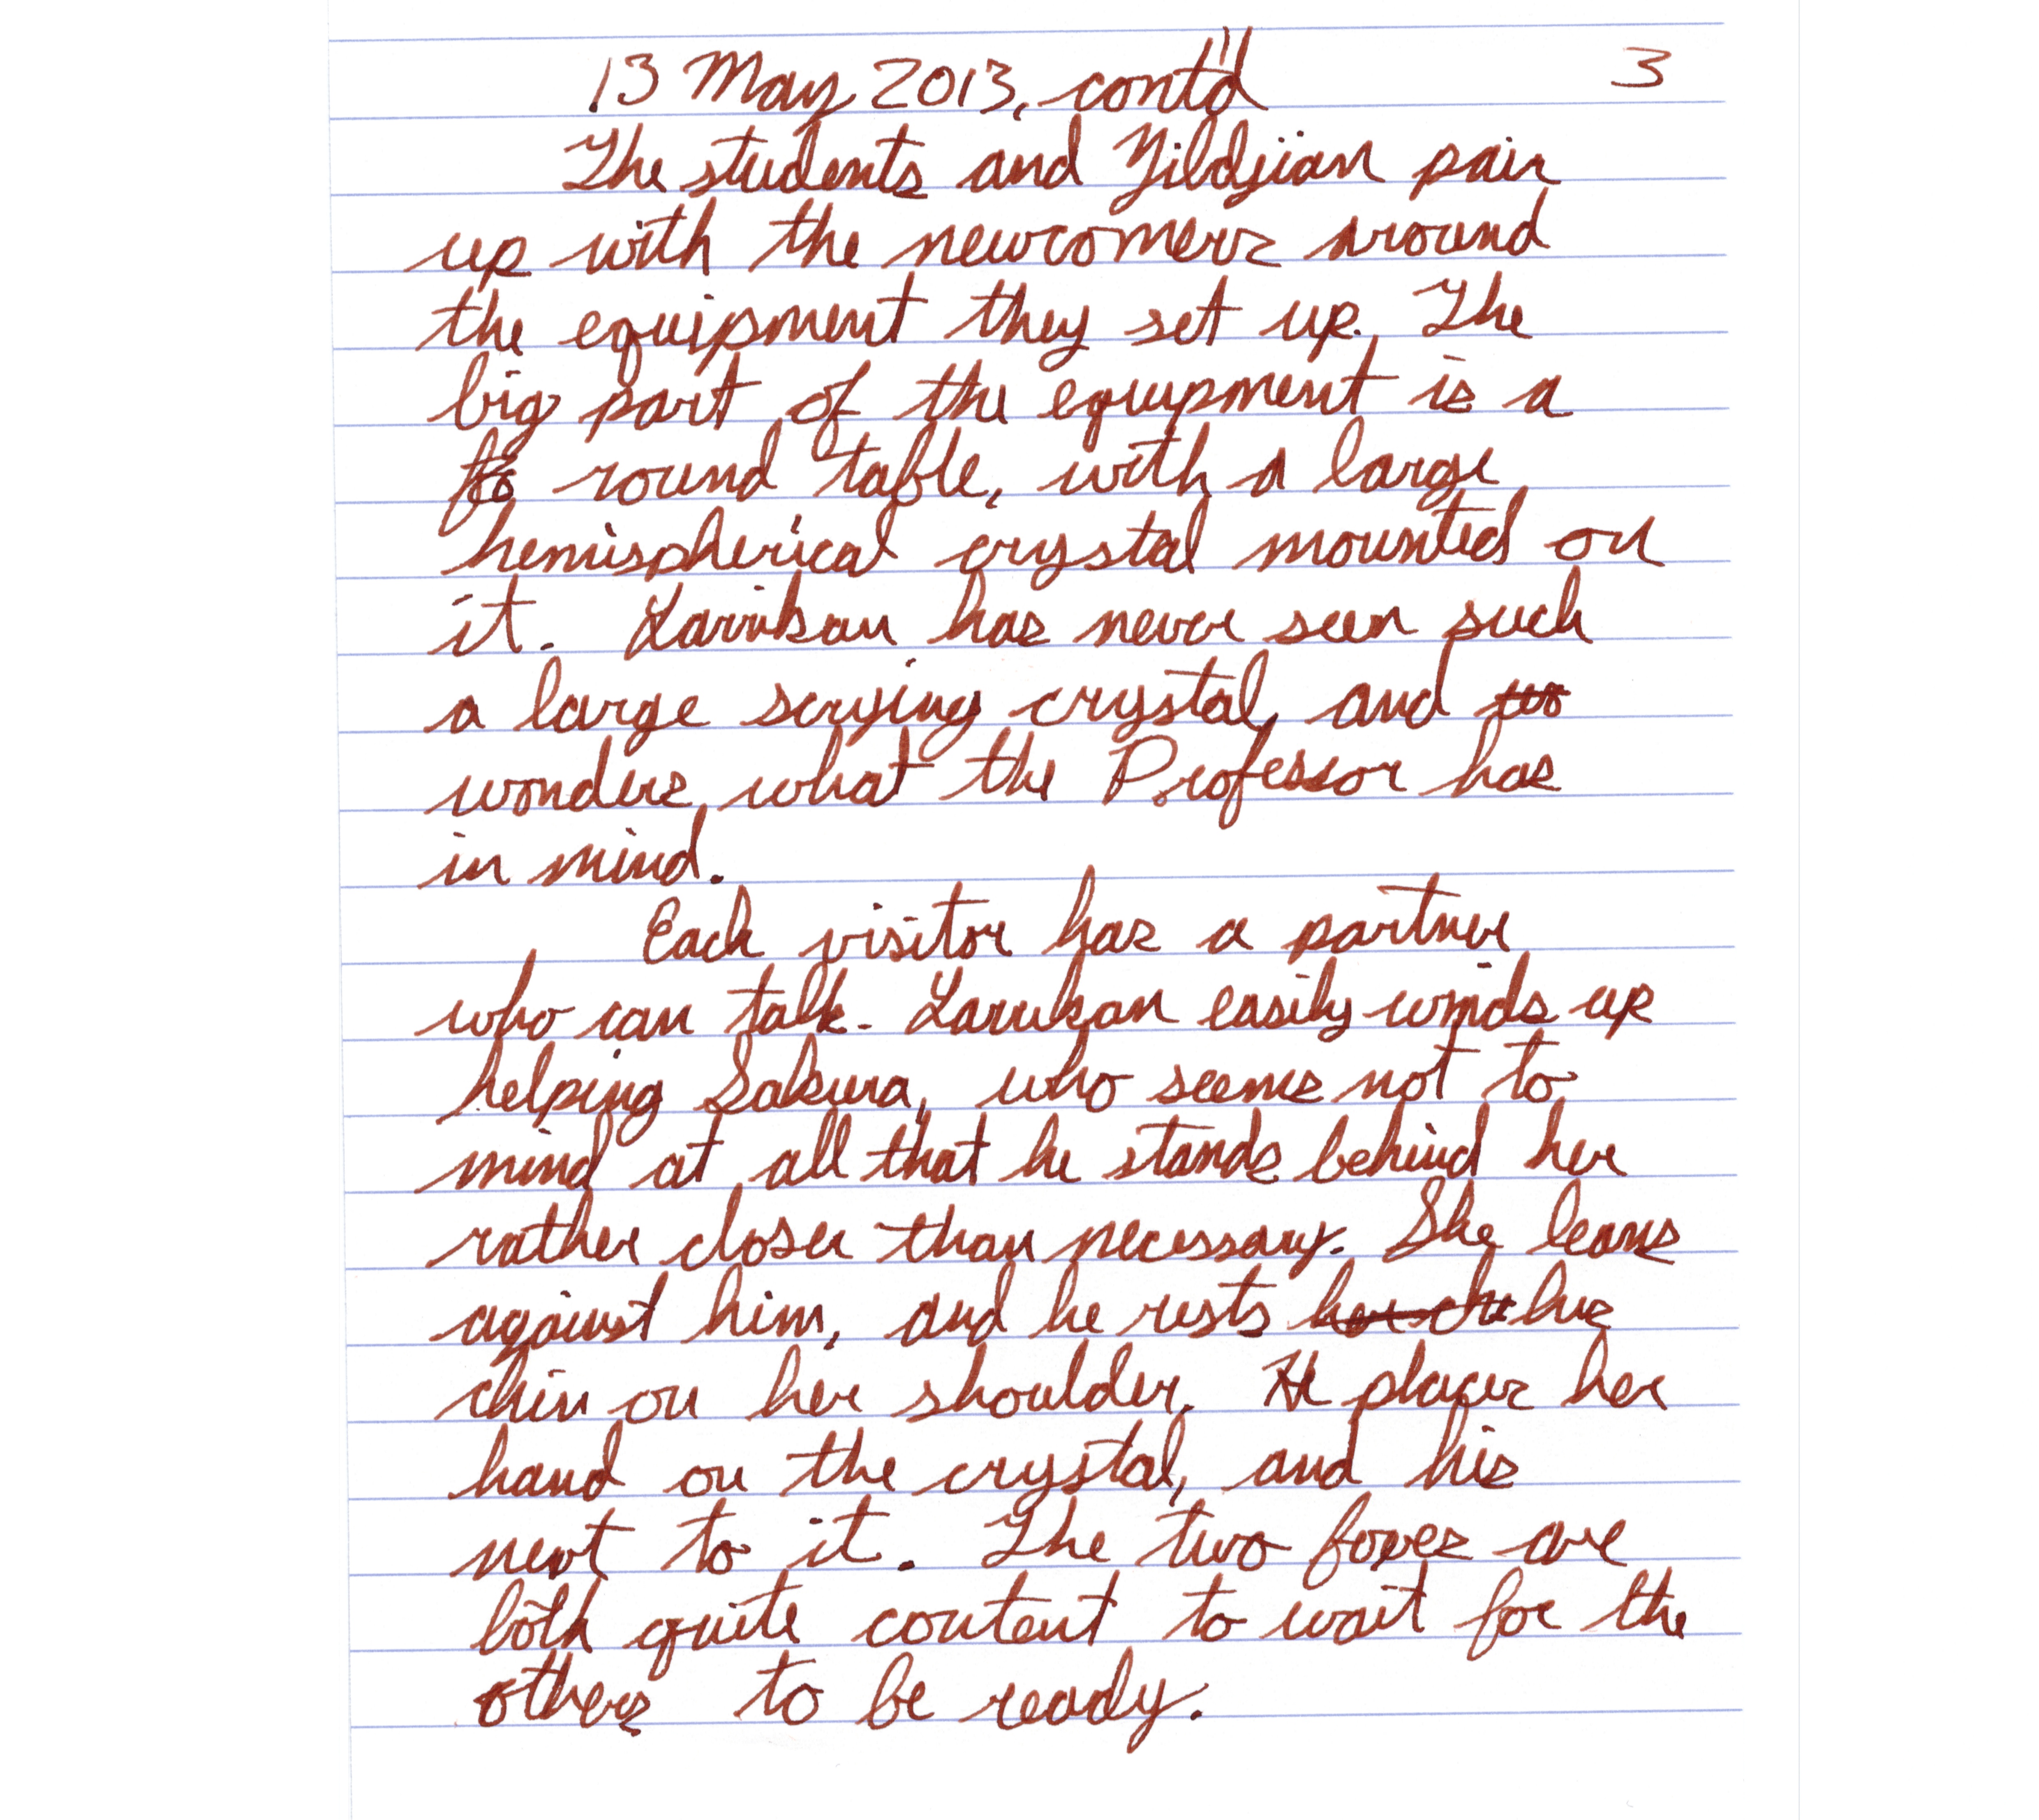 13 May 2013, cont'd 3
The students and Yildjian pair
up with the newcomers around
the equipment they set up. The
big part of the equipment is a
round table, with a large
hemispherical crystal mounted on
it. Larukan has never seen such
a large scrying crystal, and
wonders what the Professor has
in mind.
Each visitor has a partner
who can talk. Larukan easily winds up
helping Sakura, who seems not to
mind at all that he stands behind her
rather closer than necessary. She leans
against him, and he rests his
chin on her shoulder. He places her
hand on the crystal, and his
next to it. The two foxes are
both quite content to wait for the
others to be ready.